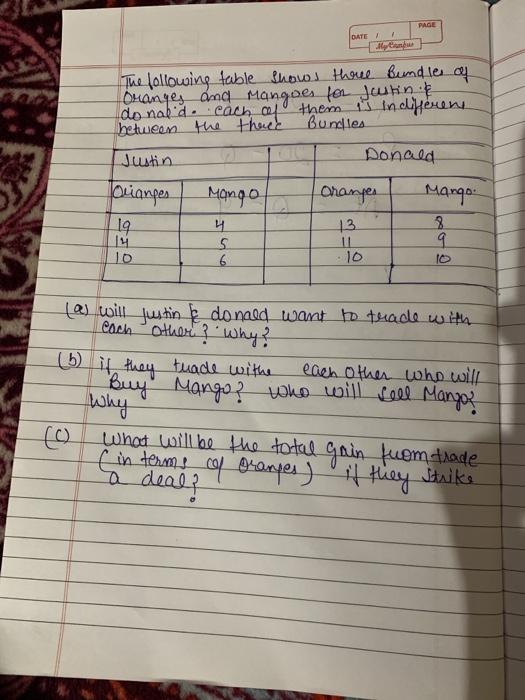 PAGE
DATE / /
My Campus
The following table shows three Bundles of
Oranges and Mangoes for Justin &
donald. each of them is Indifferent
between the three Bundles
Justin Donald
Oranges Mango Oranges Mango
19 4 13 8
14 5 11 9
10 6 10 10
(a) will Justin & donald want to trade with
each other? why?
(b) if they trade withe each other who will
Buy Mango? who will sell Mango?
Why
(c) What will be the total gain from trade
(in terms of oranges) if they strike
a deal?